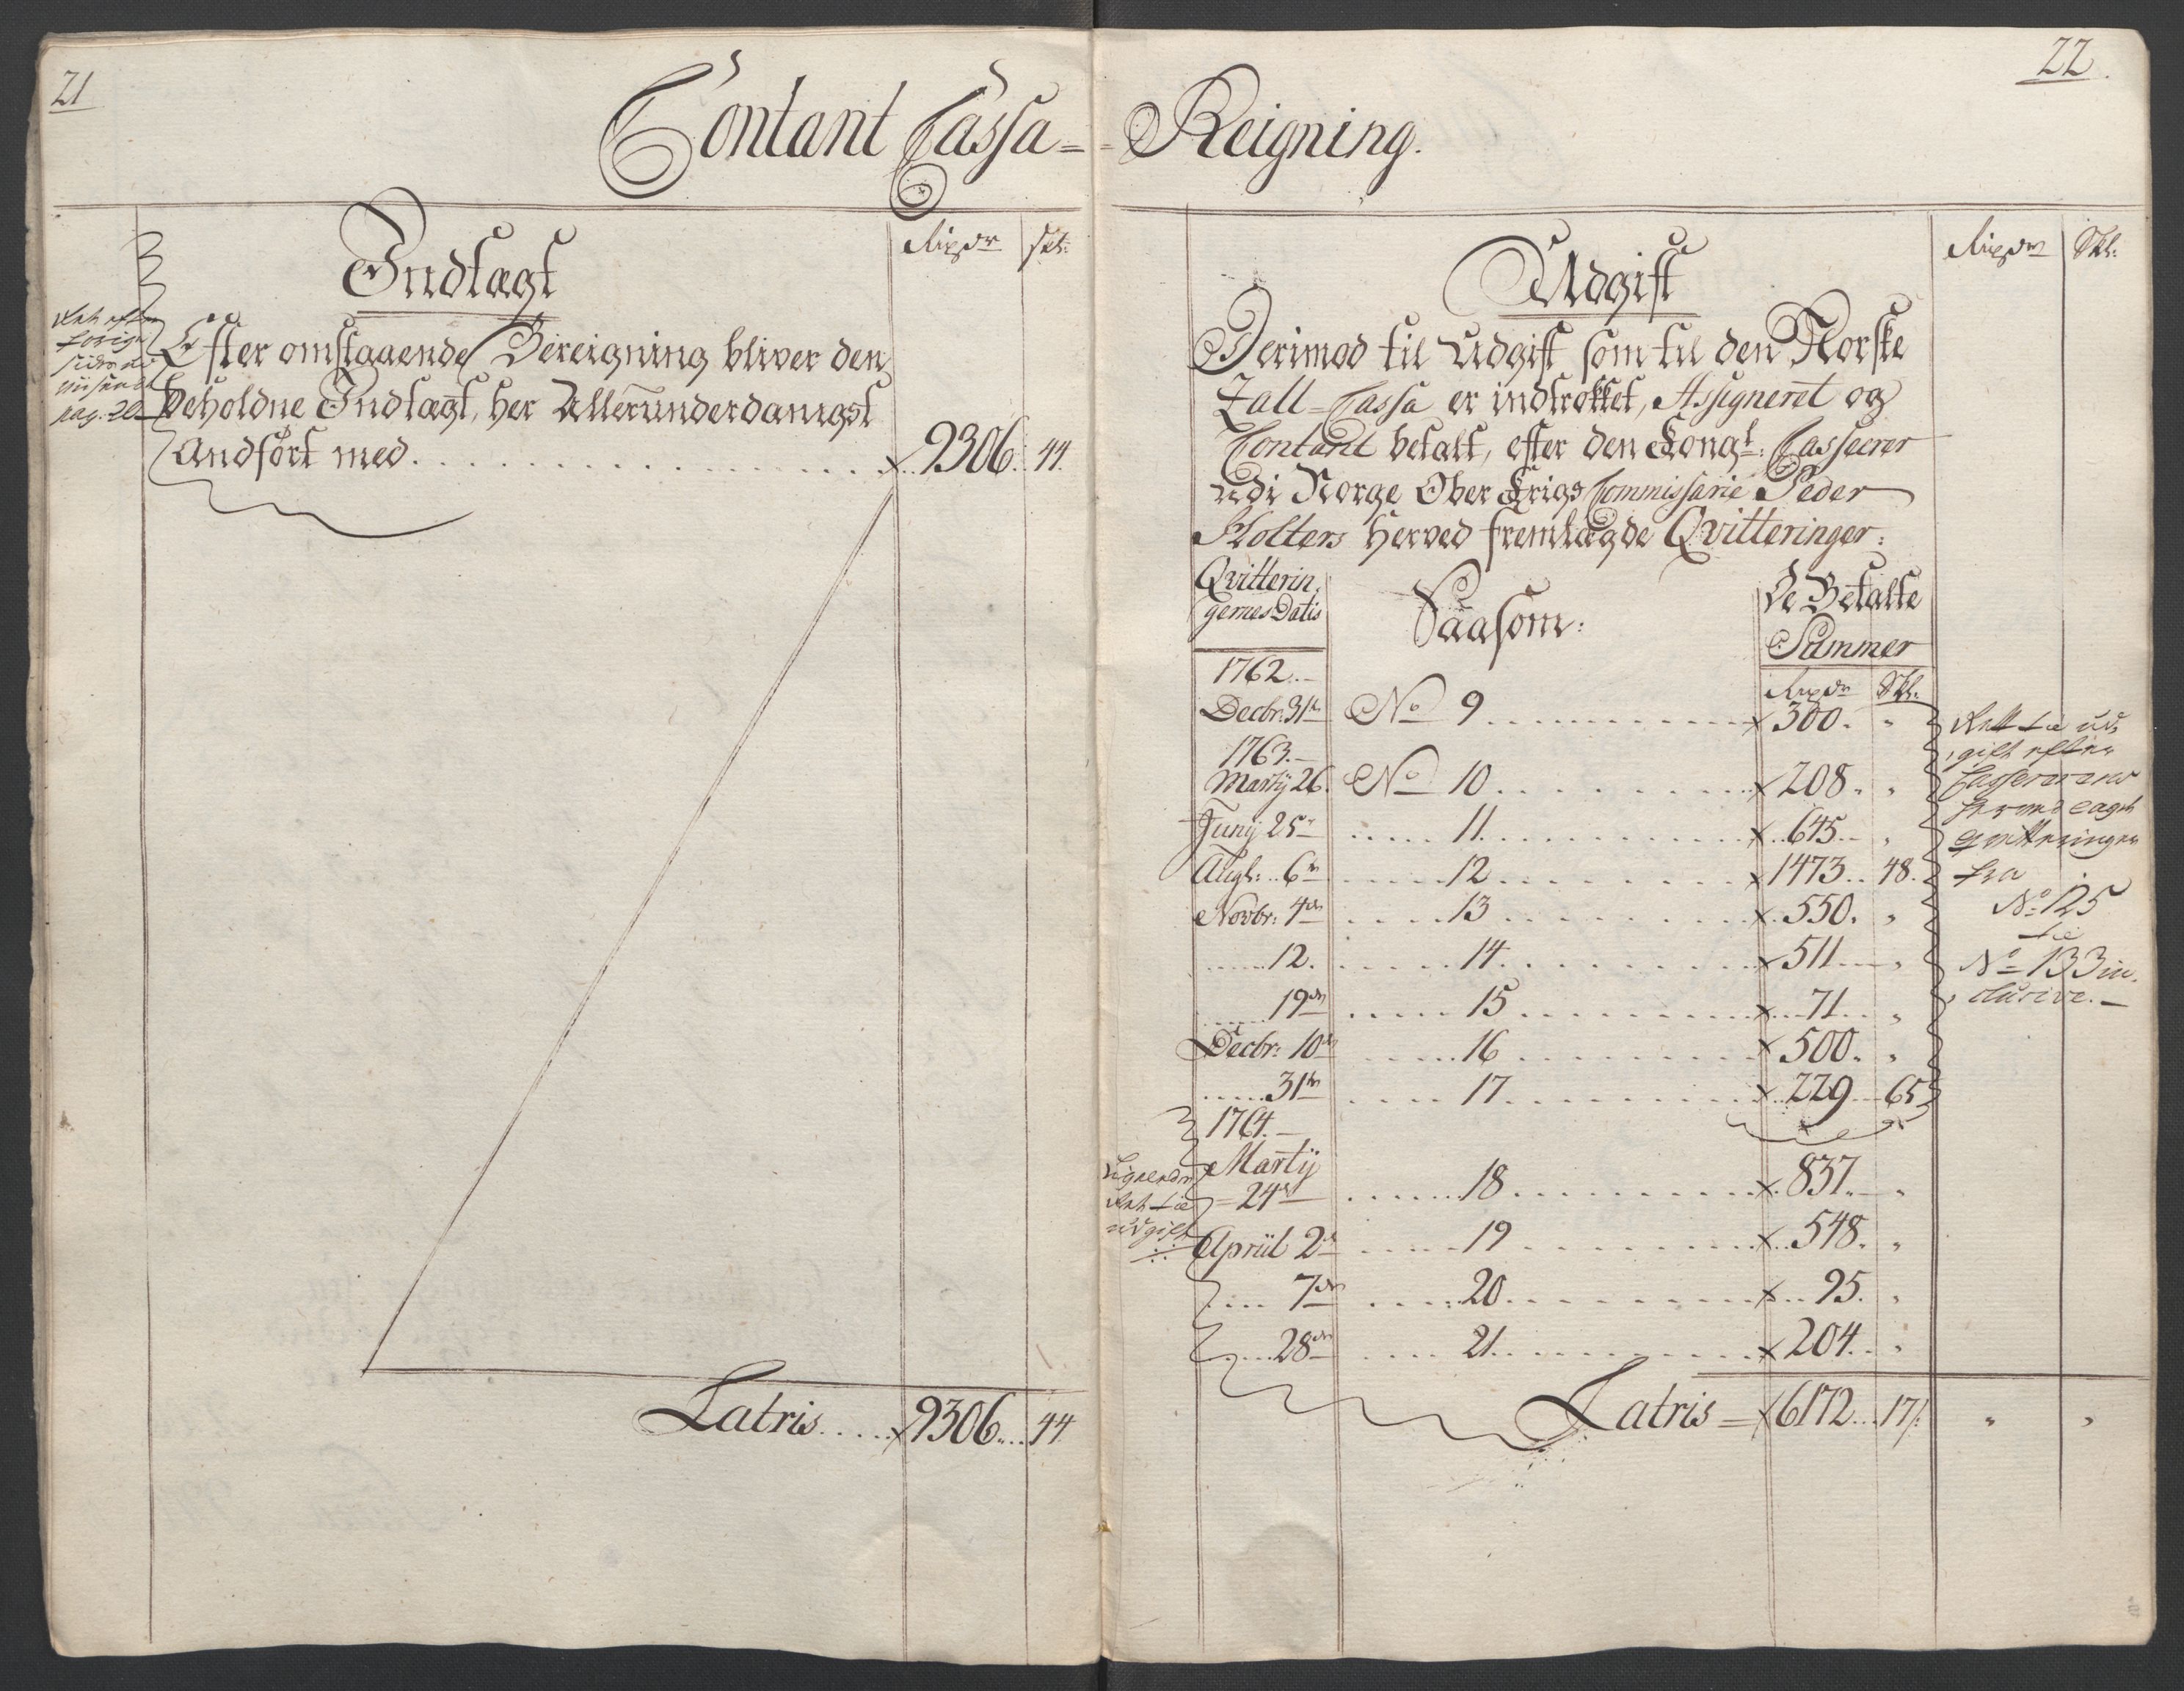 21
Contant Cassa=
Indtægt
Rixdr
skl:
Ret efter
forige
sides ud
viisende
pag. 20
Efter omstaaende Bereigning bliver den
beholdne Indtægt, her Allerunderdanigst
Andført med . . . . . . 9306. 44.
Latris . . . . . 9306. . . 44
22.
=Reigning.
Udgift
Rixdr
Skl:
Derimod til Udgift som til den Norske
Zall=Cassa er indtrokket, Assigneret og
Contant betalt, efter den Kongl: Casserer
udi Norge Ober Krigs Commissarie Peder
Holters herved fremlagde Qvitteringer:
Qvitterin,
gernes Datis
Saasom:
De Betalte
Summer
Rixdr Skl:
1762. . -
Decbr: 31te No 9 . . . . . . 300. "
1763. -
Martij 26. No 10 . . . . . . 208. "
Junij 25 . . . . . 11. . . . . . 645. - "
Aug: . . 6te . . . . . 12 . . . . . . 1473. . 48.
Novbr: 4de . . . . . 13 . . . . . . 550. "
. . . . . . 12. . . . . . 14. . . . . . 511. . . "
. . . . . . 19de . . . . . 15 . . . . . . 71. . "
Decbr: 10de . . . . . 16 . . . . . . 500. "
. . . . . 31te . . . . . 17 . . . . . . 229 . . 65
1764. -
Martij
= 24de . . . . . 18 . . . . . . 837. - "
Apriil 2de . . . . . 19 . . . . . . 548. "
. . . . 7de . . . . . 20 . . . . . . 95. "
. . . . 28de . . . . . 21. . . . . . 204. . "
Latris = 6172. . . 17. " "
Rett til ud,
,gift efter
Cassererens
fremlagde
Qvitteringer
fra
No 125
til
No 133 in,
, clusive. -
Ligeledes
Ret til
udgift